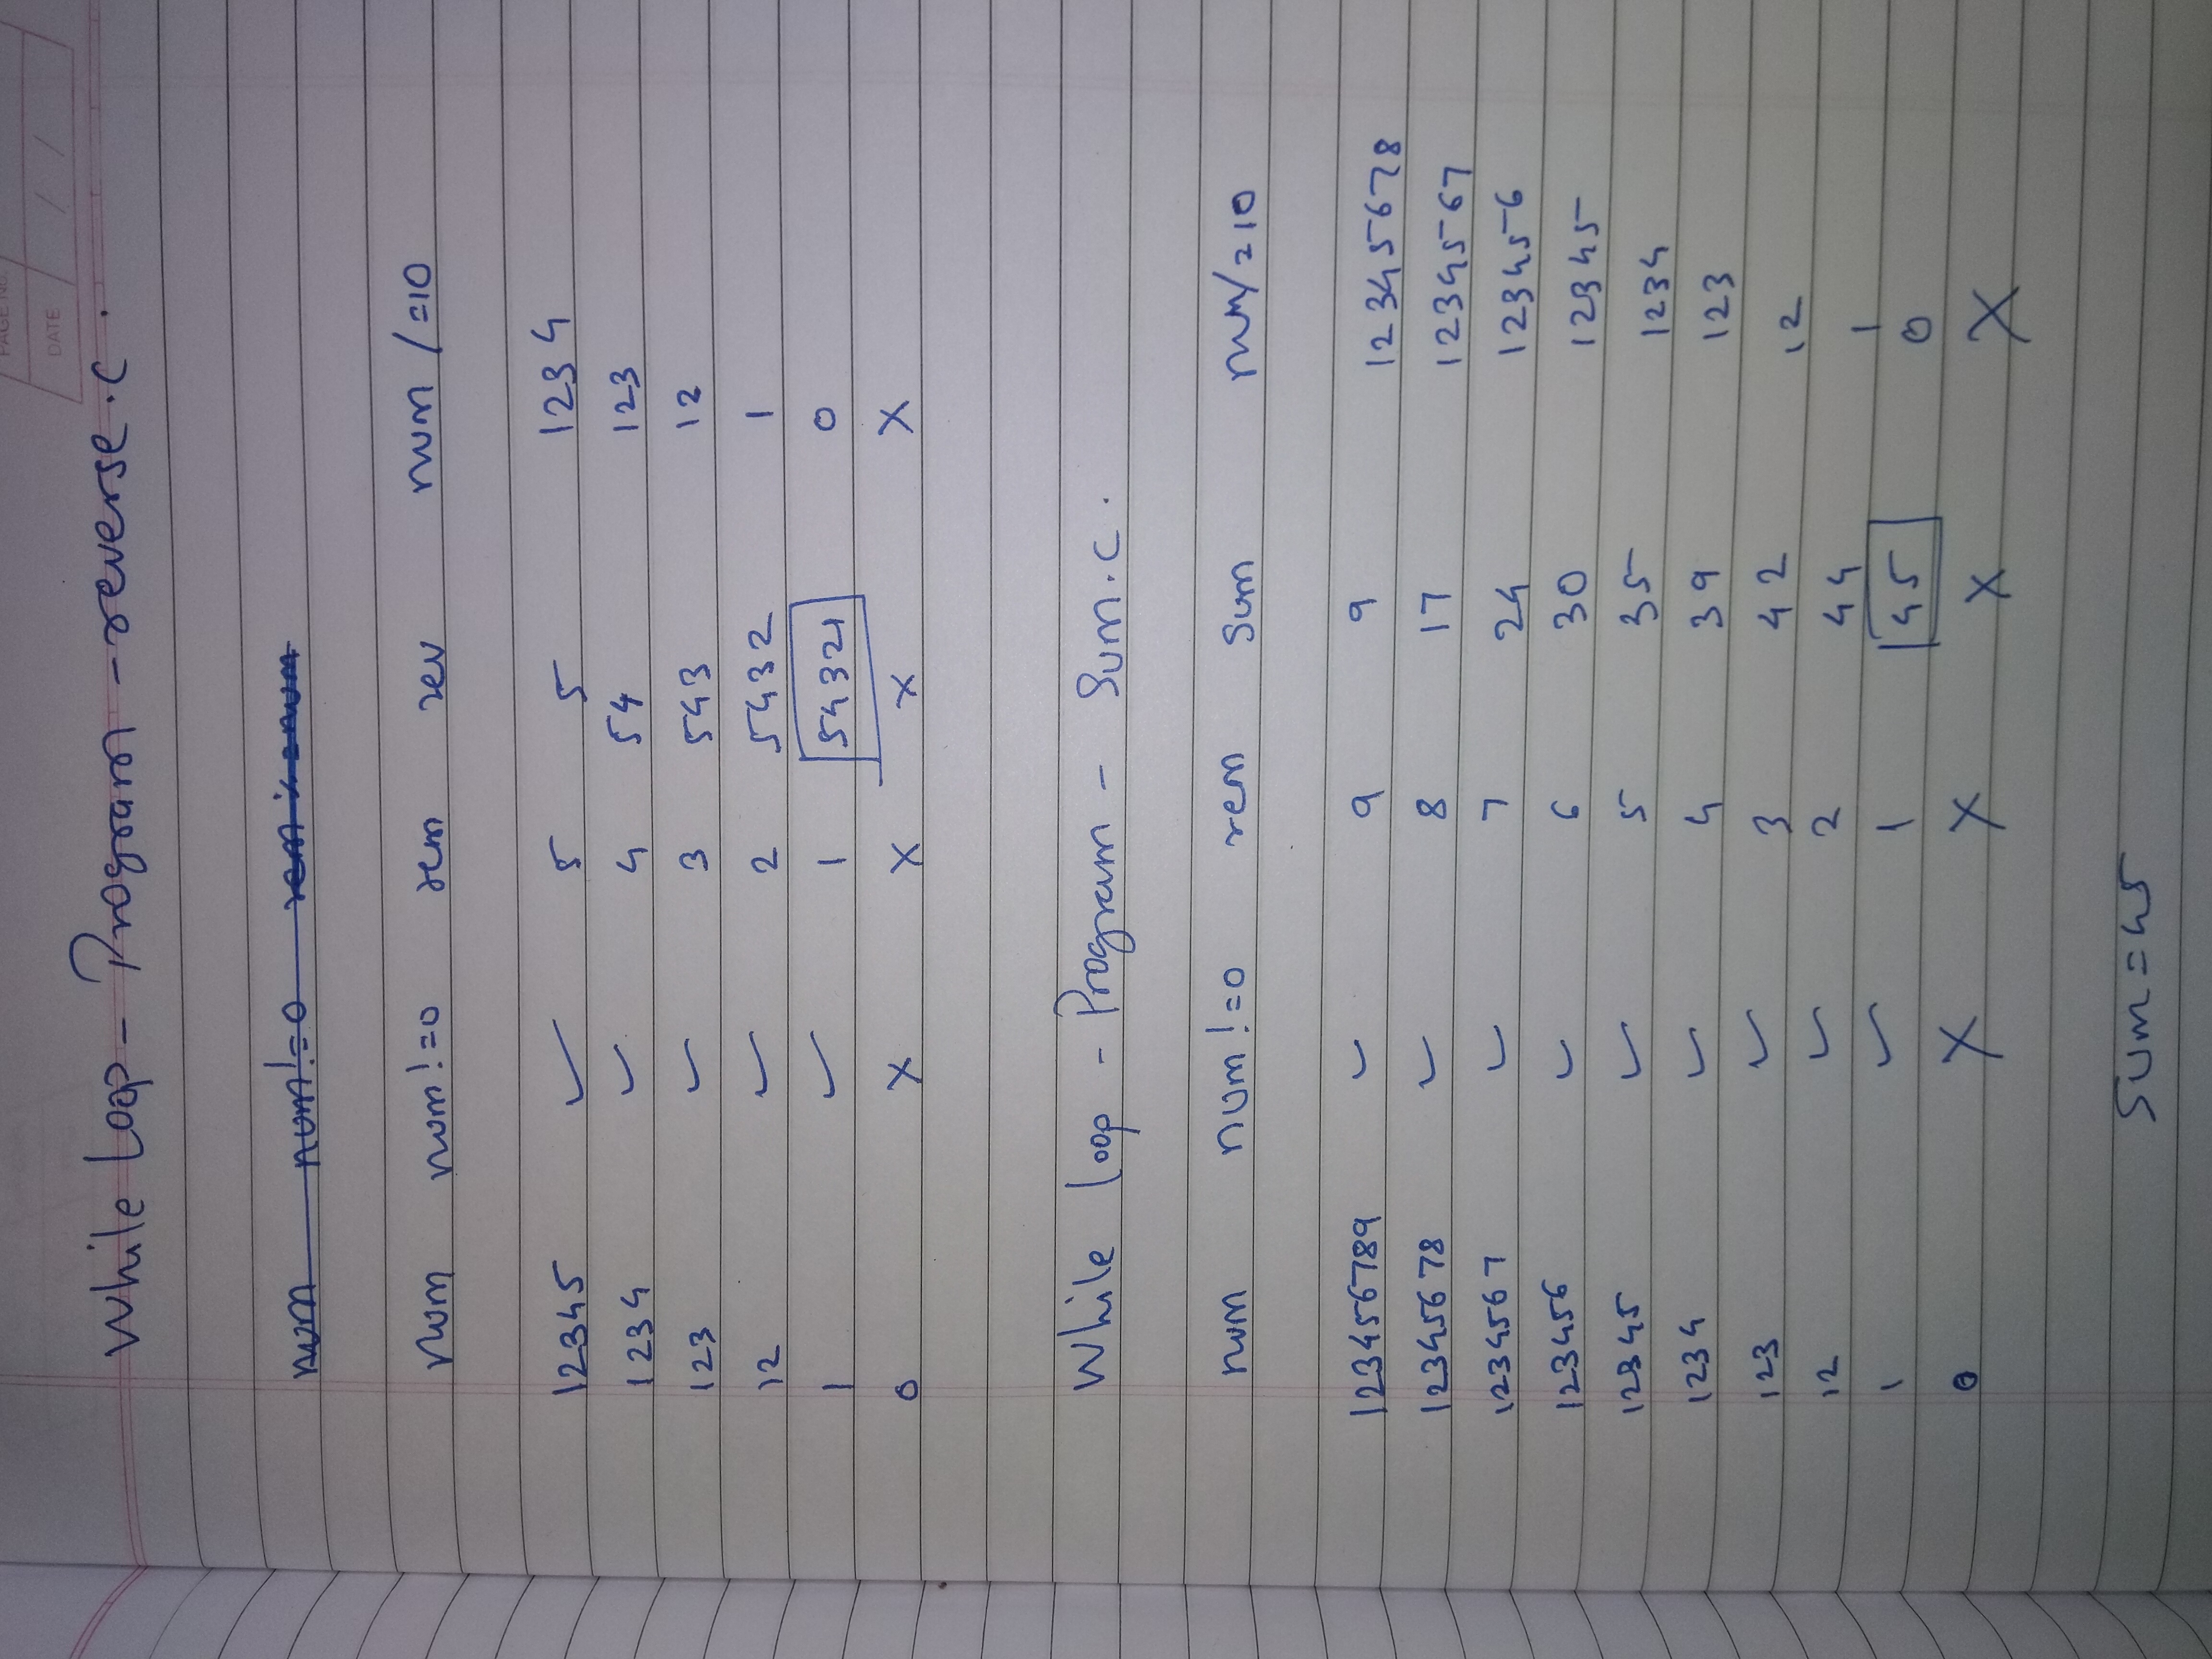 PAGE NO.
DATE / /
While Loop - Program - reverse.c.
num num!=0 rem %=num
num num!=0 rem rev num /=10
12345 ✓ 5 5 1234
1234 ✓ 4 54 123
123 ✓ 3 543 12
12 ✓ 2 5432 1
1 ✓ 1 54321 0
0 X X X X
While loop - Program - Sum.c.
num num!=0 rem Sum num/=10
123456789 ✓ 9 9 12345678
12345678 ✓ 8 17 1234567
1234567 ✓ 7 24 123456
123456 ✓ 6 30 12345
12345 ✓ 5 35 1234
1234 ✓ 4 39 123
123 ✓ 3 42 12
12 ✓ 2 44 1
1 ✓ 1 45 0
0 X X X X
Sum=45